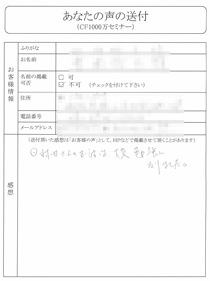 あなたの声の送付
(CF1000万セミナー)
お客様情報
ふりがな
お名前
名前の掲載
可否
□ 可
☑ 不可 (チェックを付けて下さい)
住所
電話番号
メールアドレス
感想
(送付頂いた感想は「お客様の声」として、HPなどで掲載させて頂くことがあります)
お話は
大変勉強に
なりました。